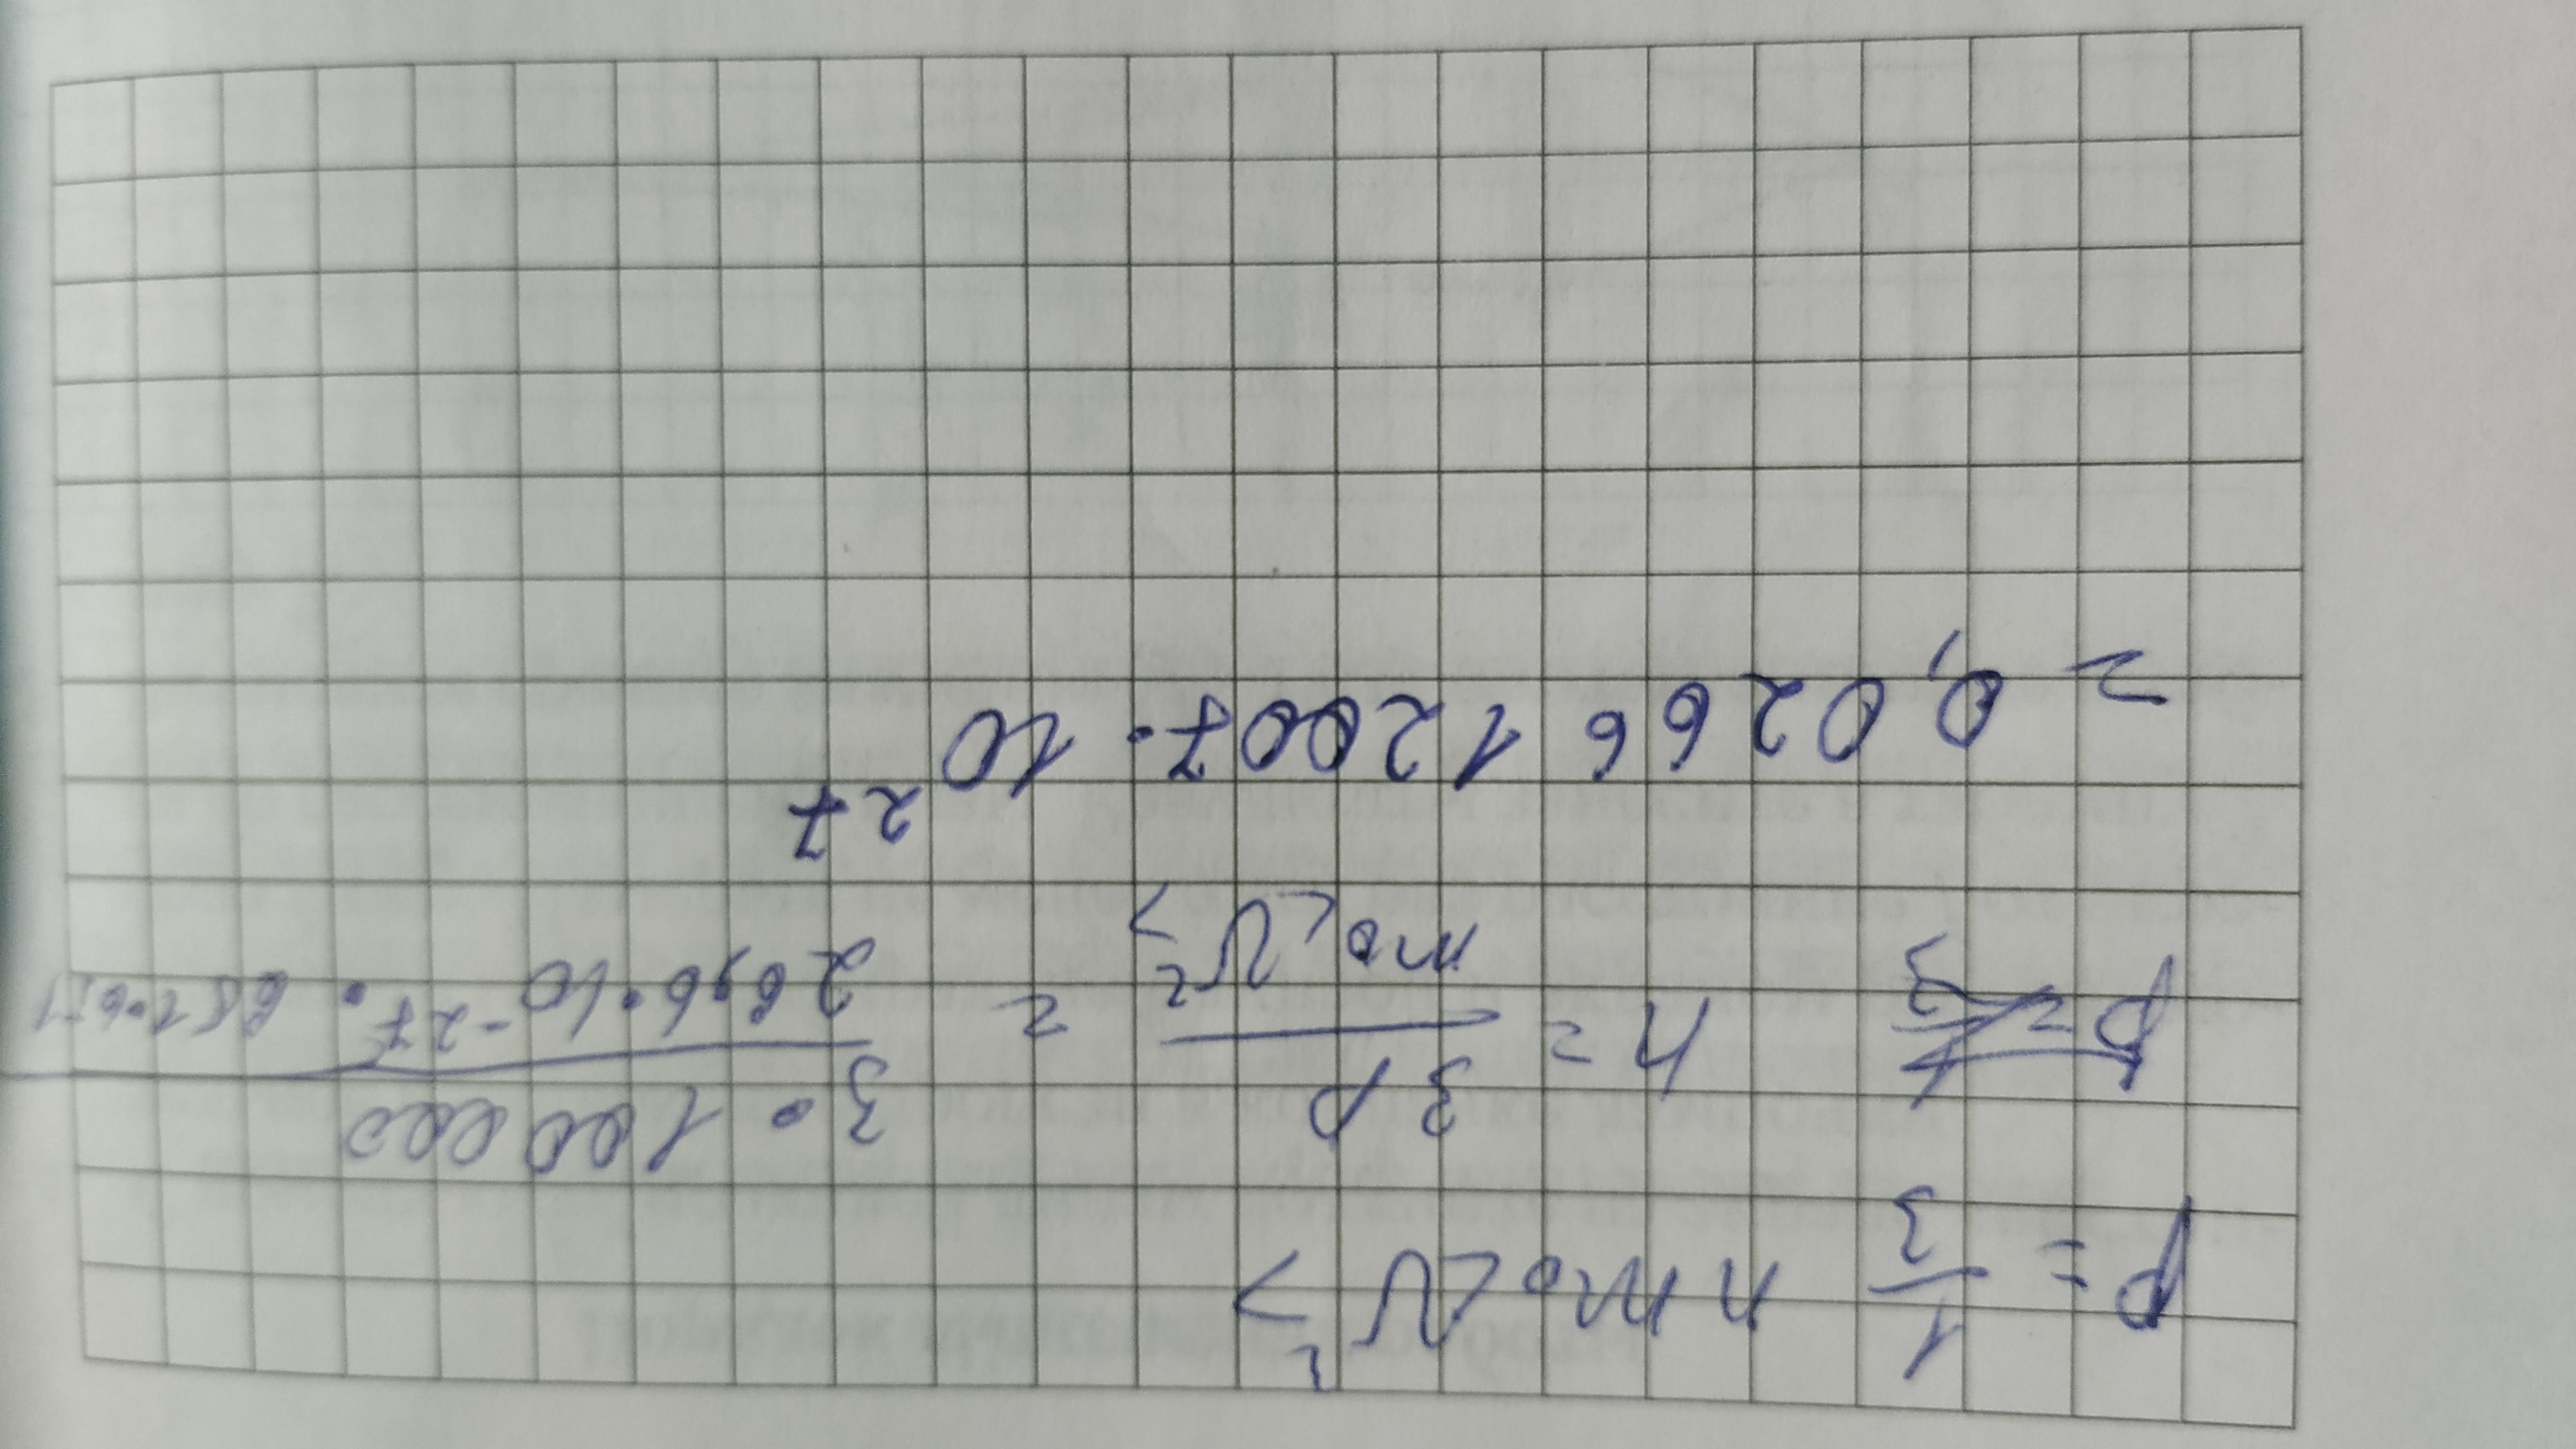 p = 1/3 n m₀ <v²>
p = 1/3 n = 3p / m₀<v²> = 3 · 100000 / 26,6·10⁻²⁷ · 651·651
= 0,0266 12007·10²⁷